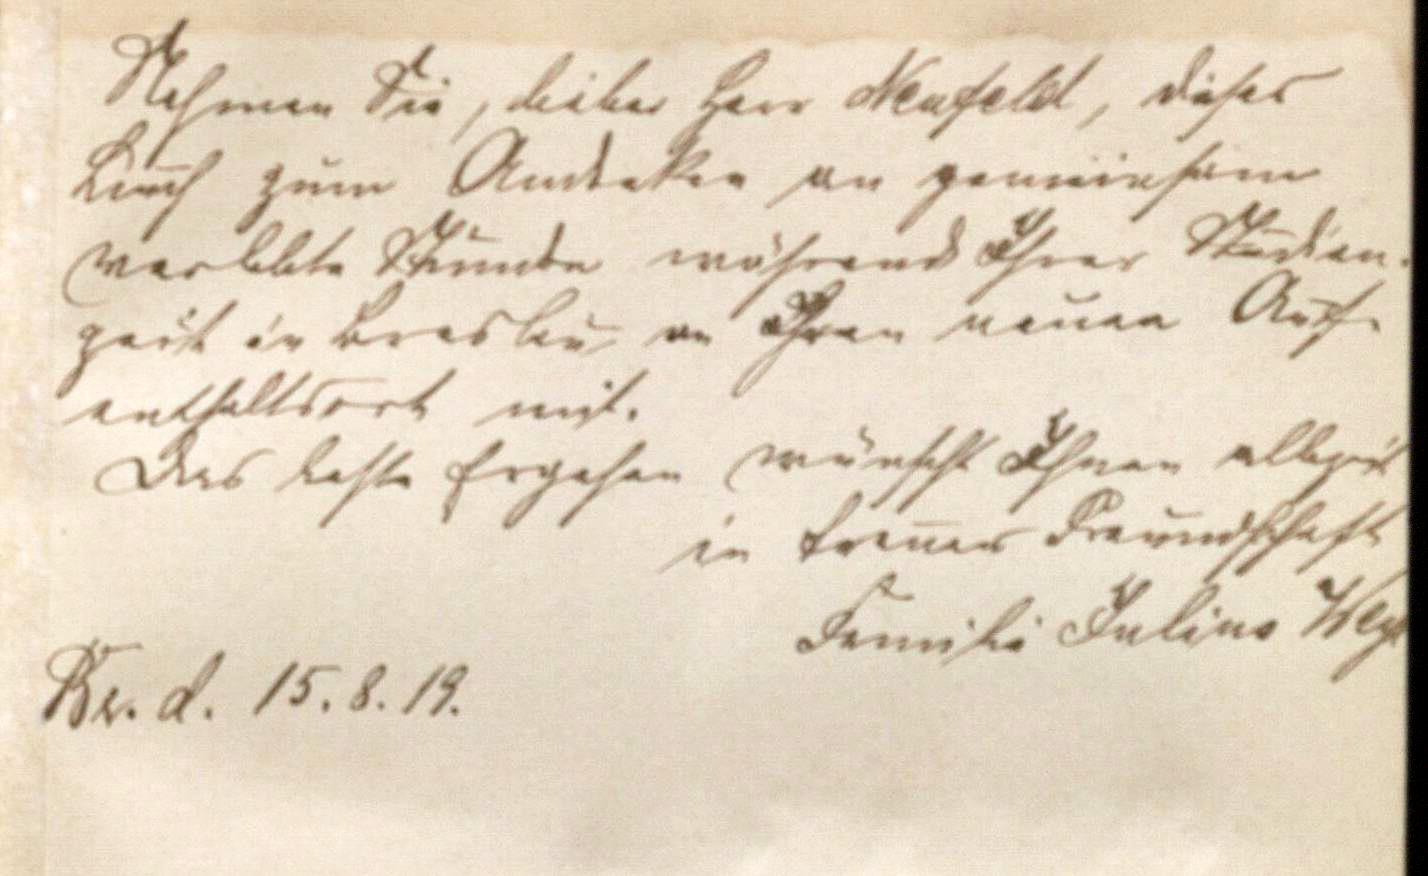 Nehmen Sie, lieber Herr Neufeld, dieses
Buch zum Andenken an gemeinsam
verlebte Stunden während Ihrer Studien-
zeit in Breslau an Ihren neuen Auf-
enthaltsort mit.
Das beste Ergehen wünscht Ihnen allezeit
in treuer Freundschaft
Familie Julius
Br. d. 15. 8. 19.